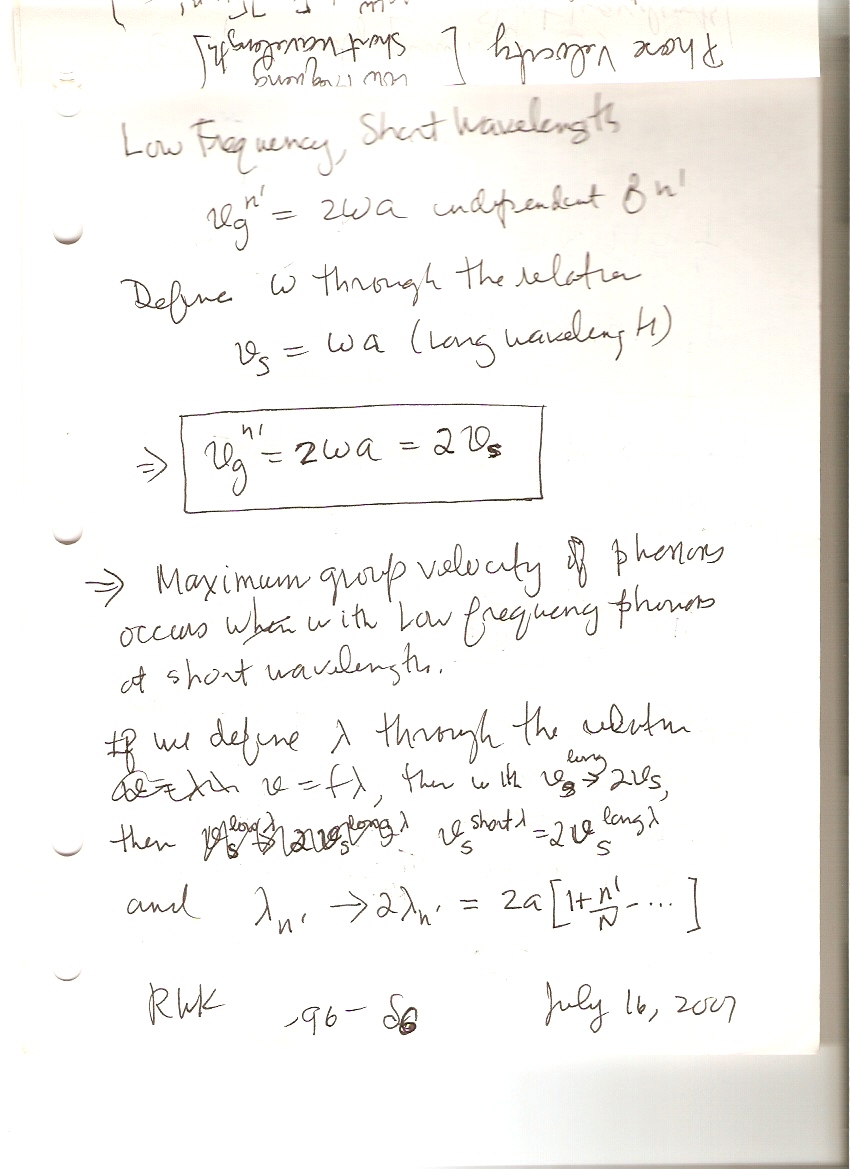 Phase Velocity [ low frequency
short wavelength ]
Low Frequency, Short Wavelength
v_g^{n'} = 2ωa independent of n'
Define ω through the relation
v_s = ωa (Long wavelength)
⇒ v_g^{n'} = 2ωa = 2v_s
⇒ Maximum group velocity of phonons
occurs when with Low frequency phonons
at short wavelength.
If we define λ through the relation
v = fλ, then with v_g^{long} → 2v_s,
then v_s^{short λ} = 2v_s^{long λ}
and λ_{n'} → 2λ_{n'} = 2a[1+n'/N-...]
RWK -96- July 16, 2007